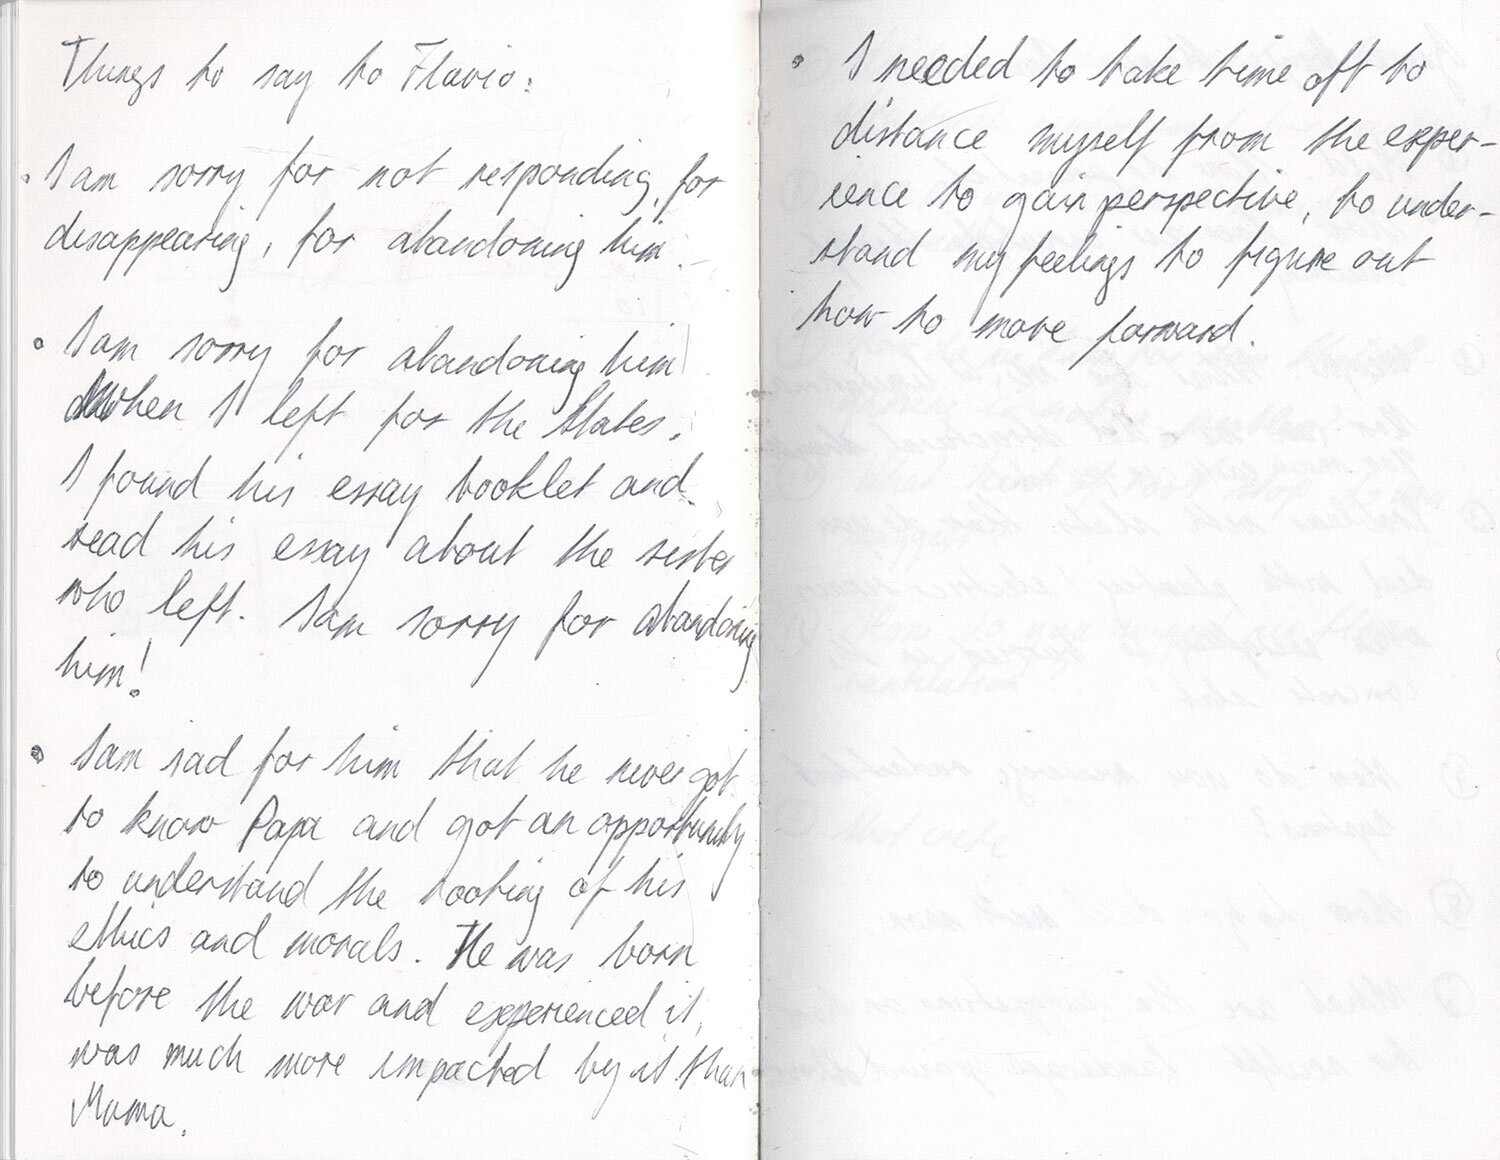 Things to say to Flavio:
• I am sorry for not responding, for
disappearing, for abandoning him.
• I am sorry for abandoning him
when I left for the States.
I found his essay booklet and
read his essay about the sister
who left. I am sorry for abandoning
him!
• I am sad for him that he never got
to know Papa and got an opportunity
to understand the rooting of his
ethics and morals. He was born
before the war and experienced it,
was much more impacted by it than
Mama.
• I needed to take time off to
distance myself from the exper-
ience to gain perspective, to under-
stand my feelings to figure out
how to move forward.